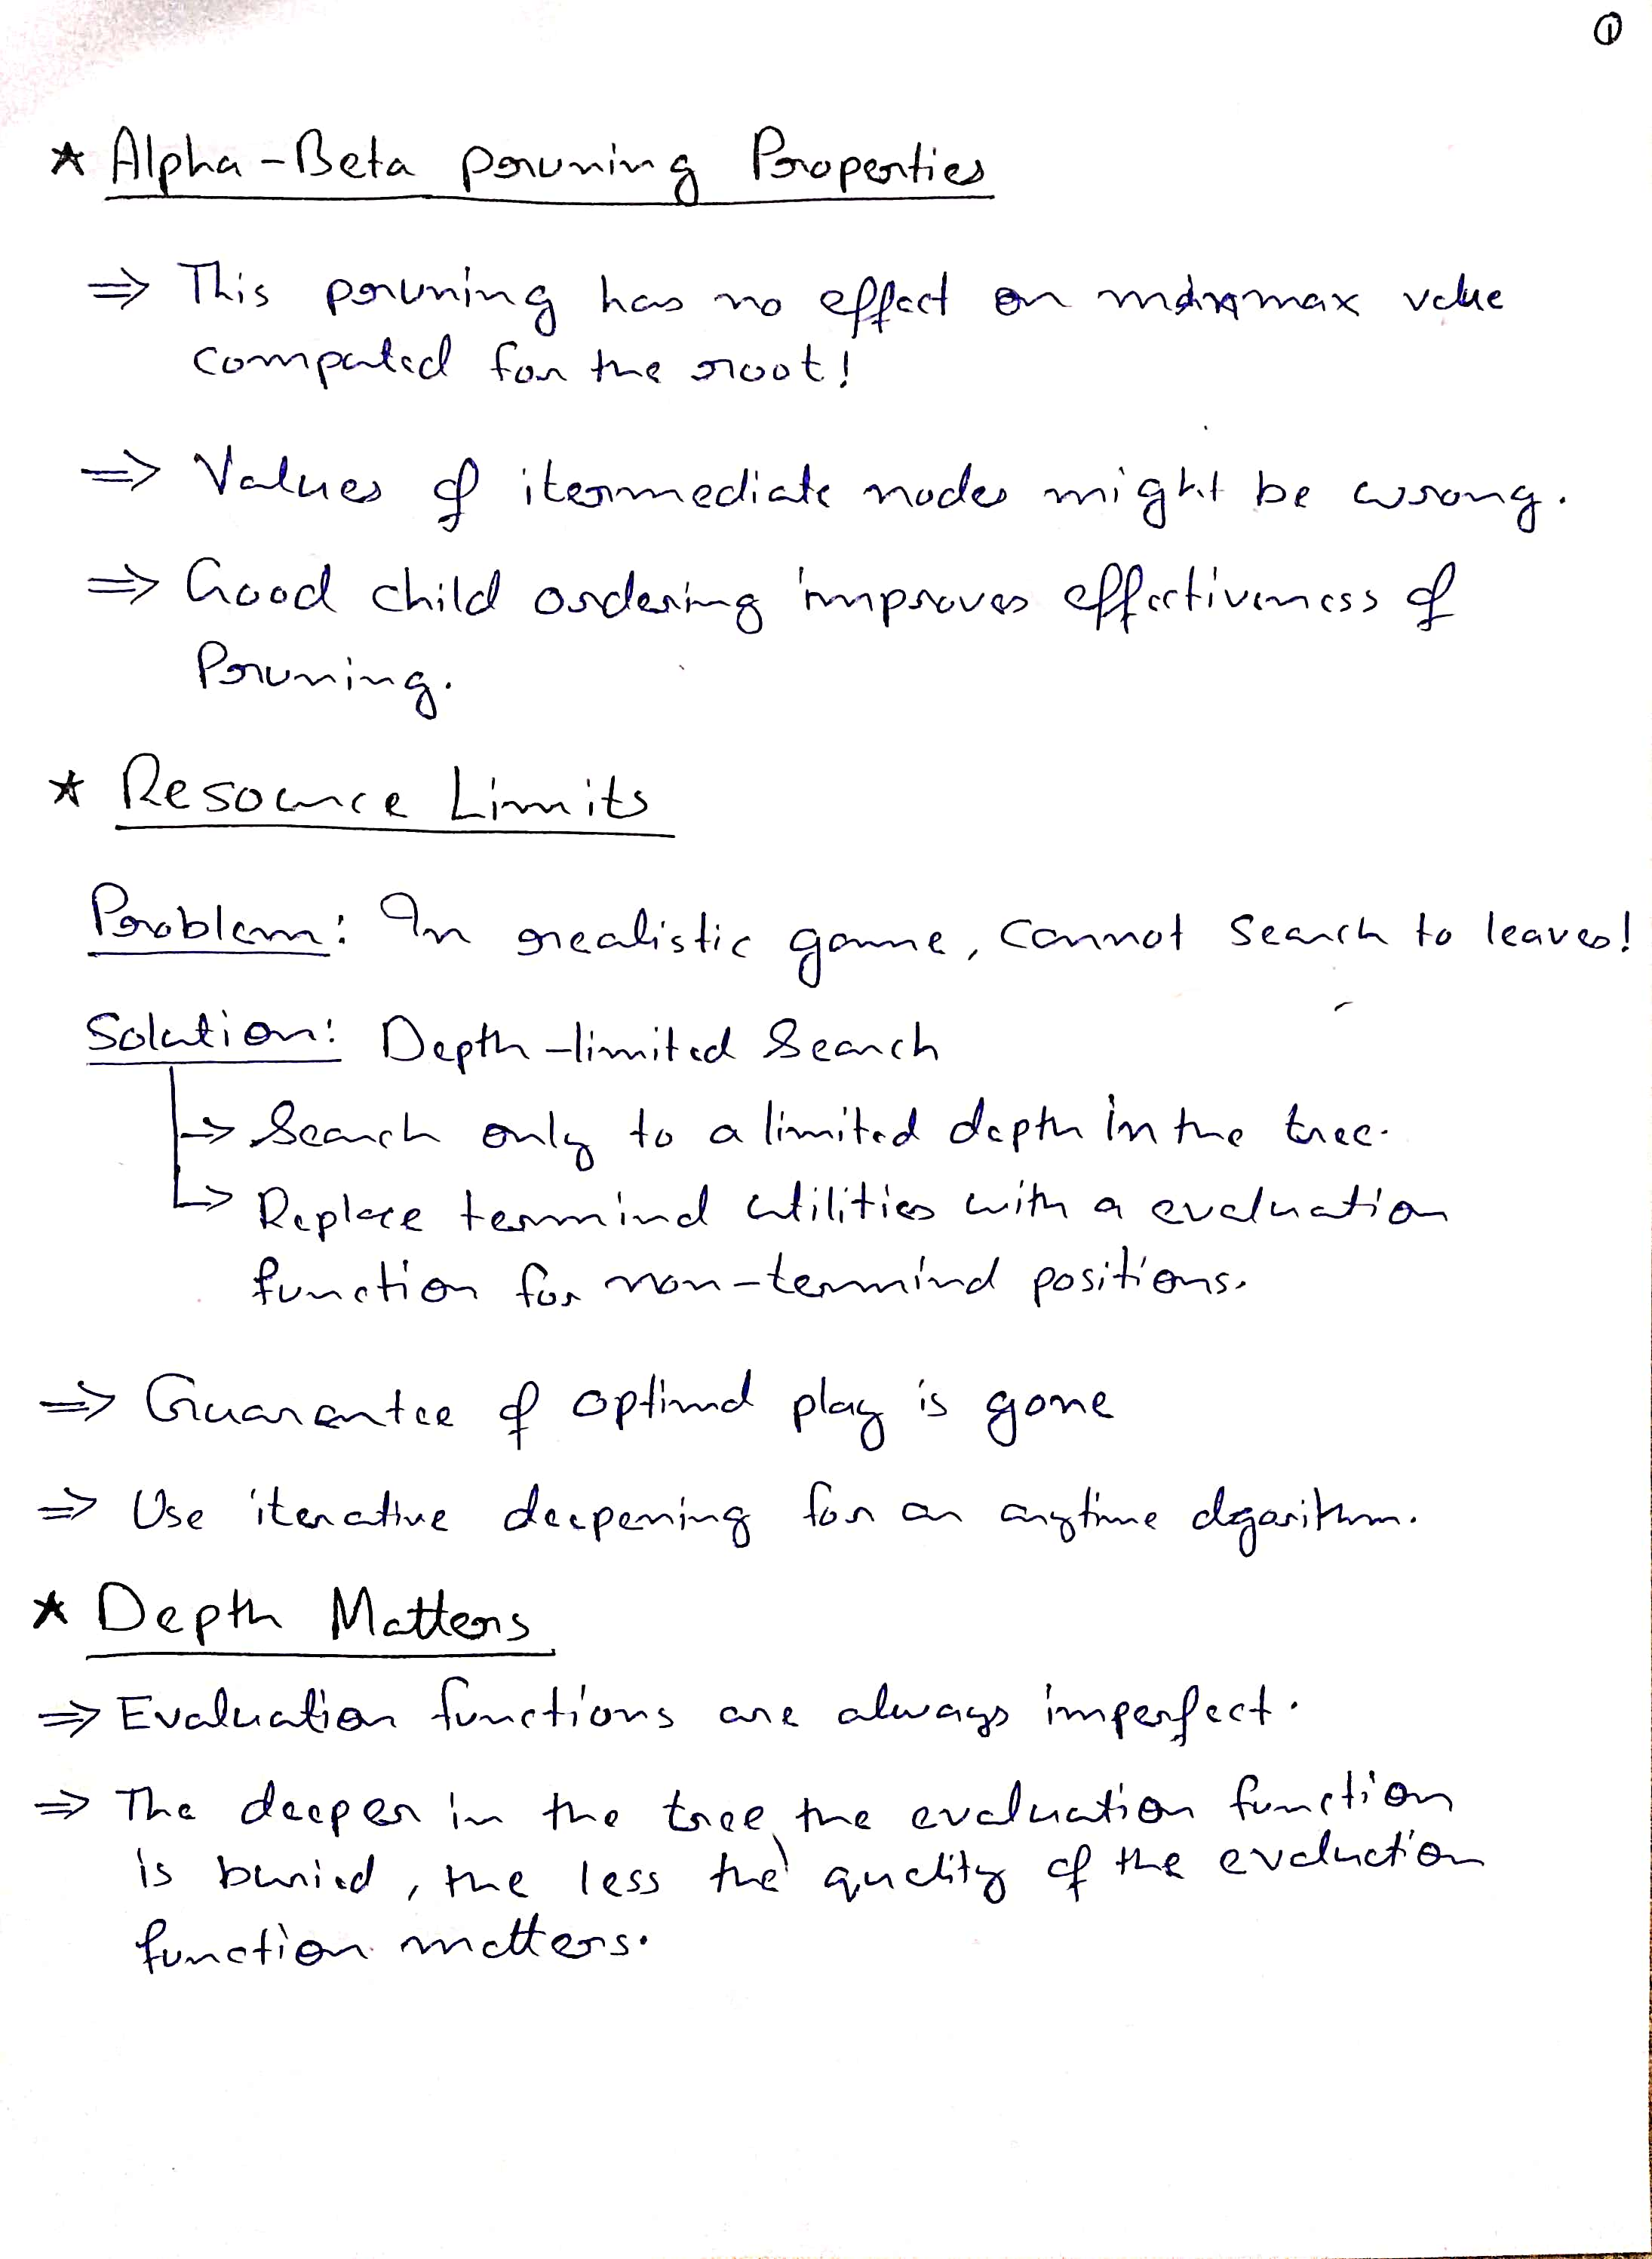 ①
* Alpha-Beta pruning Properties
⇒ This pruning has no effect on minimax value
computed for the root!
⇒ Values of itermediate nodes might be wrong.
⇒ Good child ordering improves effectiveness of
Pruning.
* Resource Limits
Problem: In realistic game, cannot search to leaves!
Solution: Depth-limited Search
→ Search only to a limited depth in the tree.
→ Replace terminal utilities with a evaluation
function for non-terminal positions.
⇒ Guarantee of optimal play is gone
⇒ Use iterative deepening for an anytime algorithm.
* Depth Matters
⇒ Evaluation functions are always imperfect.
⇒ The deeper in the tree, the evaluation function
is buried, the less the quality of the evaluction
function matters.